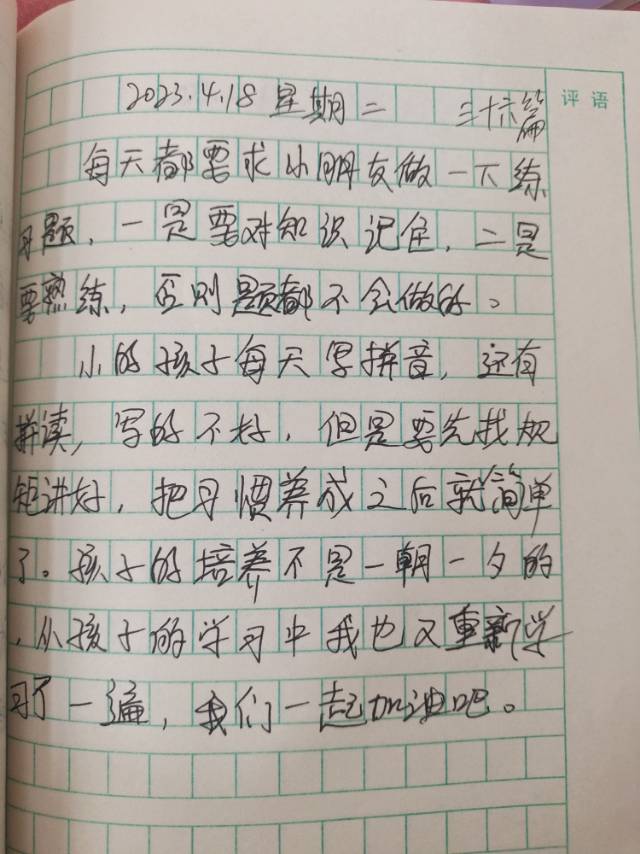 评语
2023.4.18 星期二 三十六篇
每天都要求小朋友做一下练
习题，一是要对知识记住，二是
要熟练，否则题都不会做的。
小的孩子每天写拼音，还有
拼读，写的不好，但是要先找规
矩讲好，把习惯养成之后就简单
了。孩子的培养不是一朝一夕的
，从孩子的学习中我也又重新学
习了一遍，我们一起加油吧。